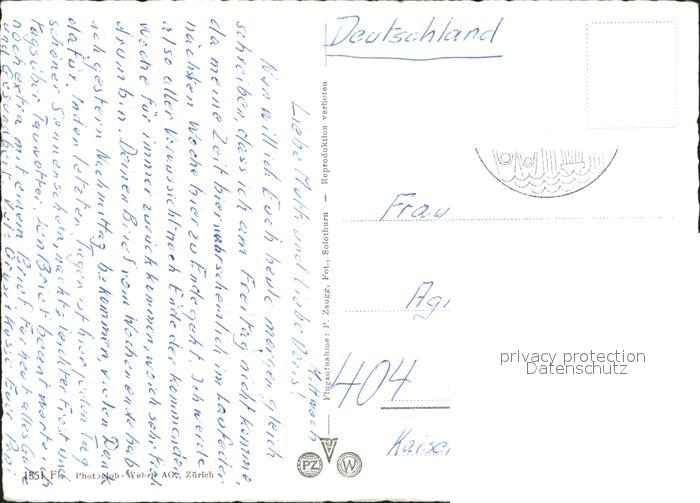 Deutschland
Frau
Agi
404
Kaise
privacy protection
Datenschutz
Flugaufnahme: P. Zaugg, Fot., Solothurn – Reproduktion verboten
PZ
W
1351 Photoglob-Wehrli AG., Zürich
Mittwoch
Liebe und liebe Doris!
Nun will ich Euch heute morgen gleich
schreiben, dass ich am Freitag nicht komme,
da meine Zeit hier wahrscheinlich im Laufe der
nächsten Woche hier zu Ende geht. Ich werde
also aller Voraussicht nach Ende der kommenden
Woche für immer zurück kommen, weil ich
drum bin. Deinen Brief vom Wochenende hab
ich gestern Nachmittag bekommen, vielen Dank
dafür. In den letzten Tagen ist hier jeden Tag
schöner Sonnenschein, nachts leichter Frost und
tagsüber Tauwetter. Den Brief beantworte ich
noch extra mit einem Brief. Für heut alles
und